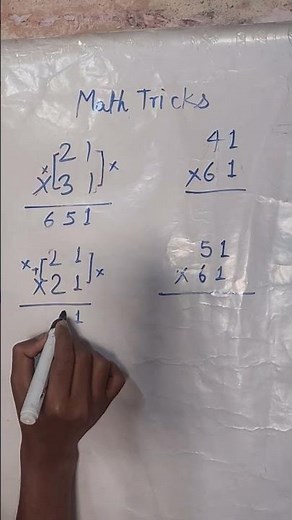 Math Tricks
x[21]x
x31
651
41
x61
x+[21]x
x21
1
51
x61